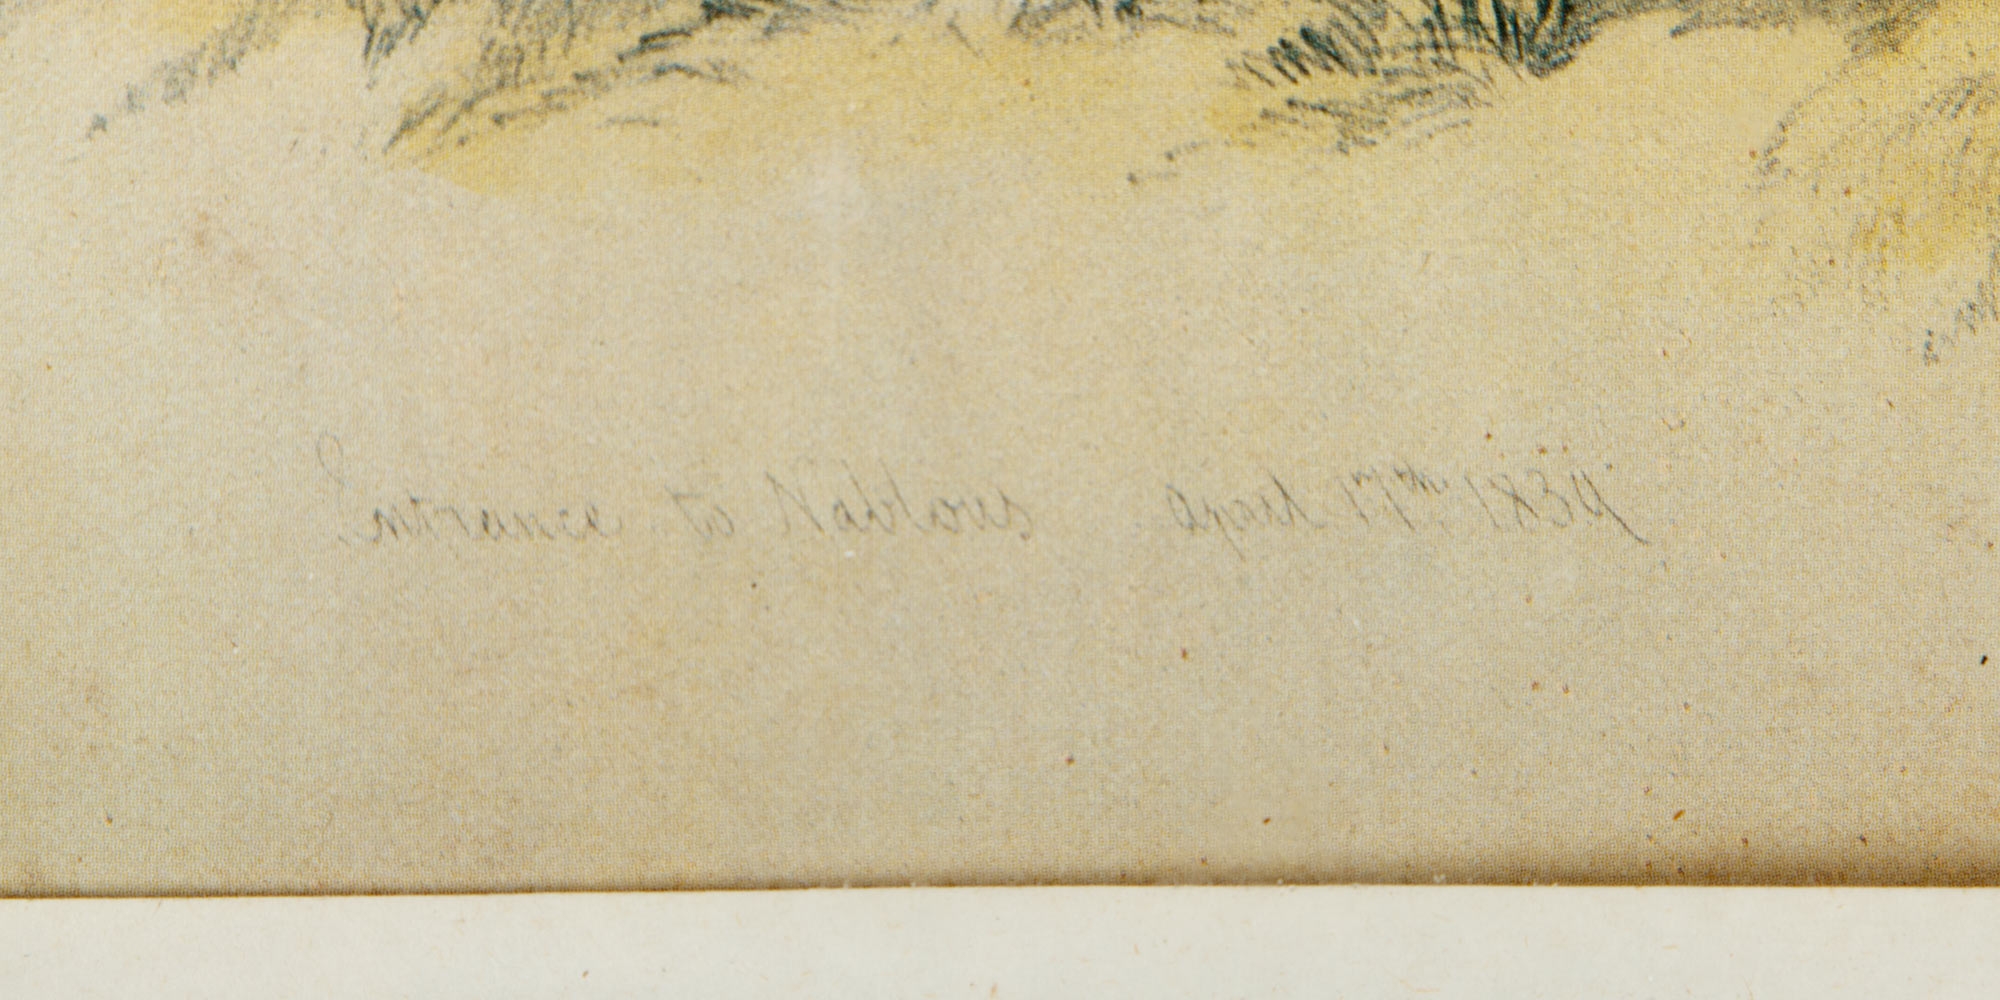 Entrance to Nablous April 17th 1839